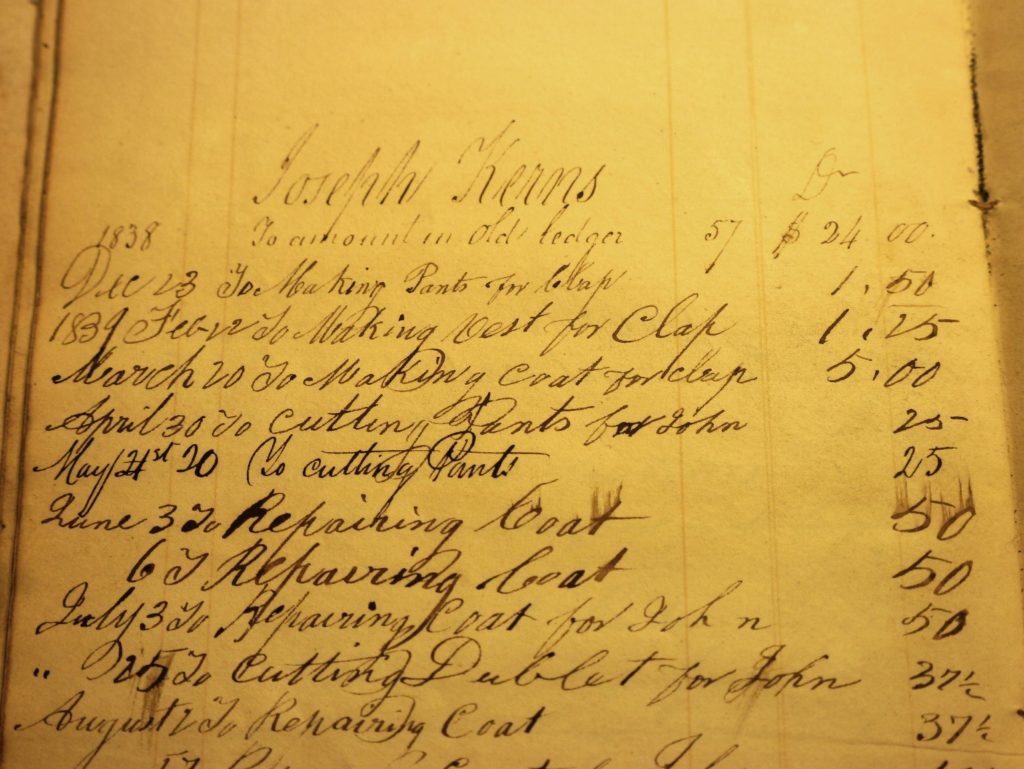 Joseph Kerns Dr
1838 To amount in Old ledger 57 $ 24.00.
Dec 23 To Making Pants for Clap 1.50
1839 Feb 12 To Making Vest for Clap 1.25
March 20 To Making Coat for Clap 5.00
April 30 To Cutting Pants for John 25
May 20 To cutting Pants 25
June 3 To Repairing Coat 50
6 T Repairing Coat 50
July 3 To Repairing Coat for John 50
" 25 To Cutting Dublet for John 37½
August To Repairing Coat 37½